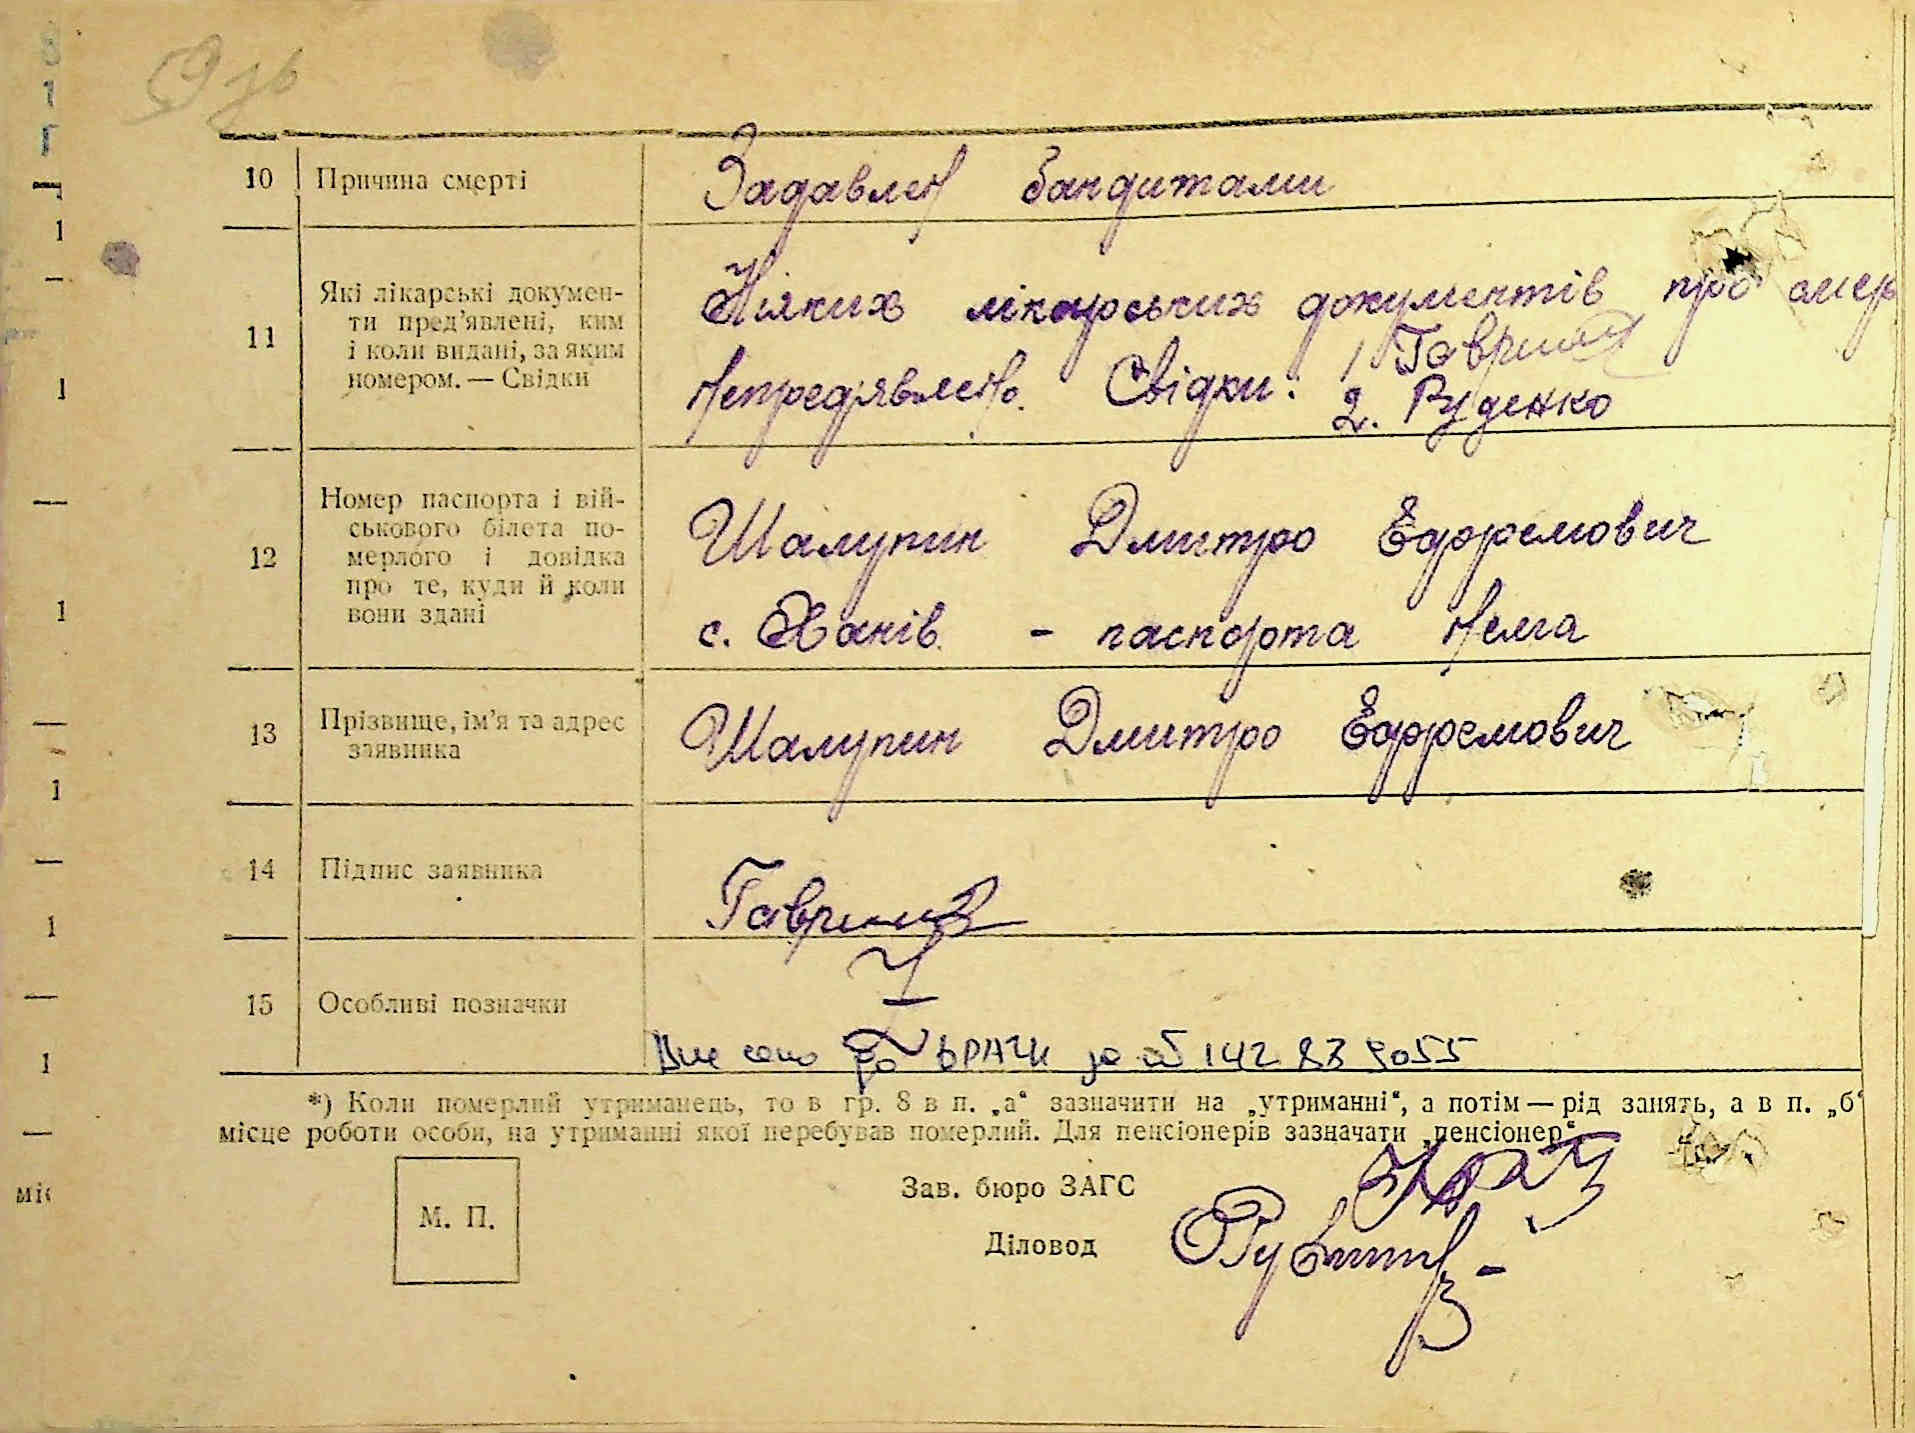 10 Причина смерті Задавлен бандитами
11 Які лікарські докумен-
ти пред'явлені, ким
і коли видані, за яким
номером. — Свідки
Ніяких лікарських документів про смер
непредявлено. Свідки: 1 Гаврилюк
2. Руденко
12 Номер паспорта і вій-
ськового білета по-
мерлого і довідка
про те, куди й коли
вони здані
Шалупин Дмитро Ефремович
с. Ханів - паспорта нема
13 Прізвище, ім'я та адрес
заявника
Шалупин Дмитро Ефремович
14 Підпис заявника
15 Особливі позначки
Внесено до ДРАЦС за № 142 839055
*) Коли померлий утриманець, то в гр. 8 в п. „а“ зазначити на „утриманні“, а потім — рід занять, а в п. „б“
місце роботи особи, на утриманні якої перебував померлий. Для пенсіонерів зазначати „пенсіонер“.
Зав. бюро ЗАГС
М. П.
Діловод